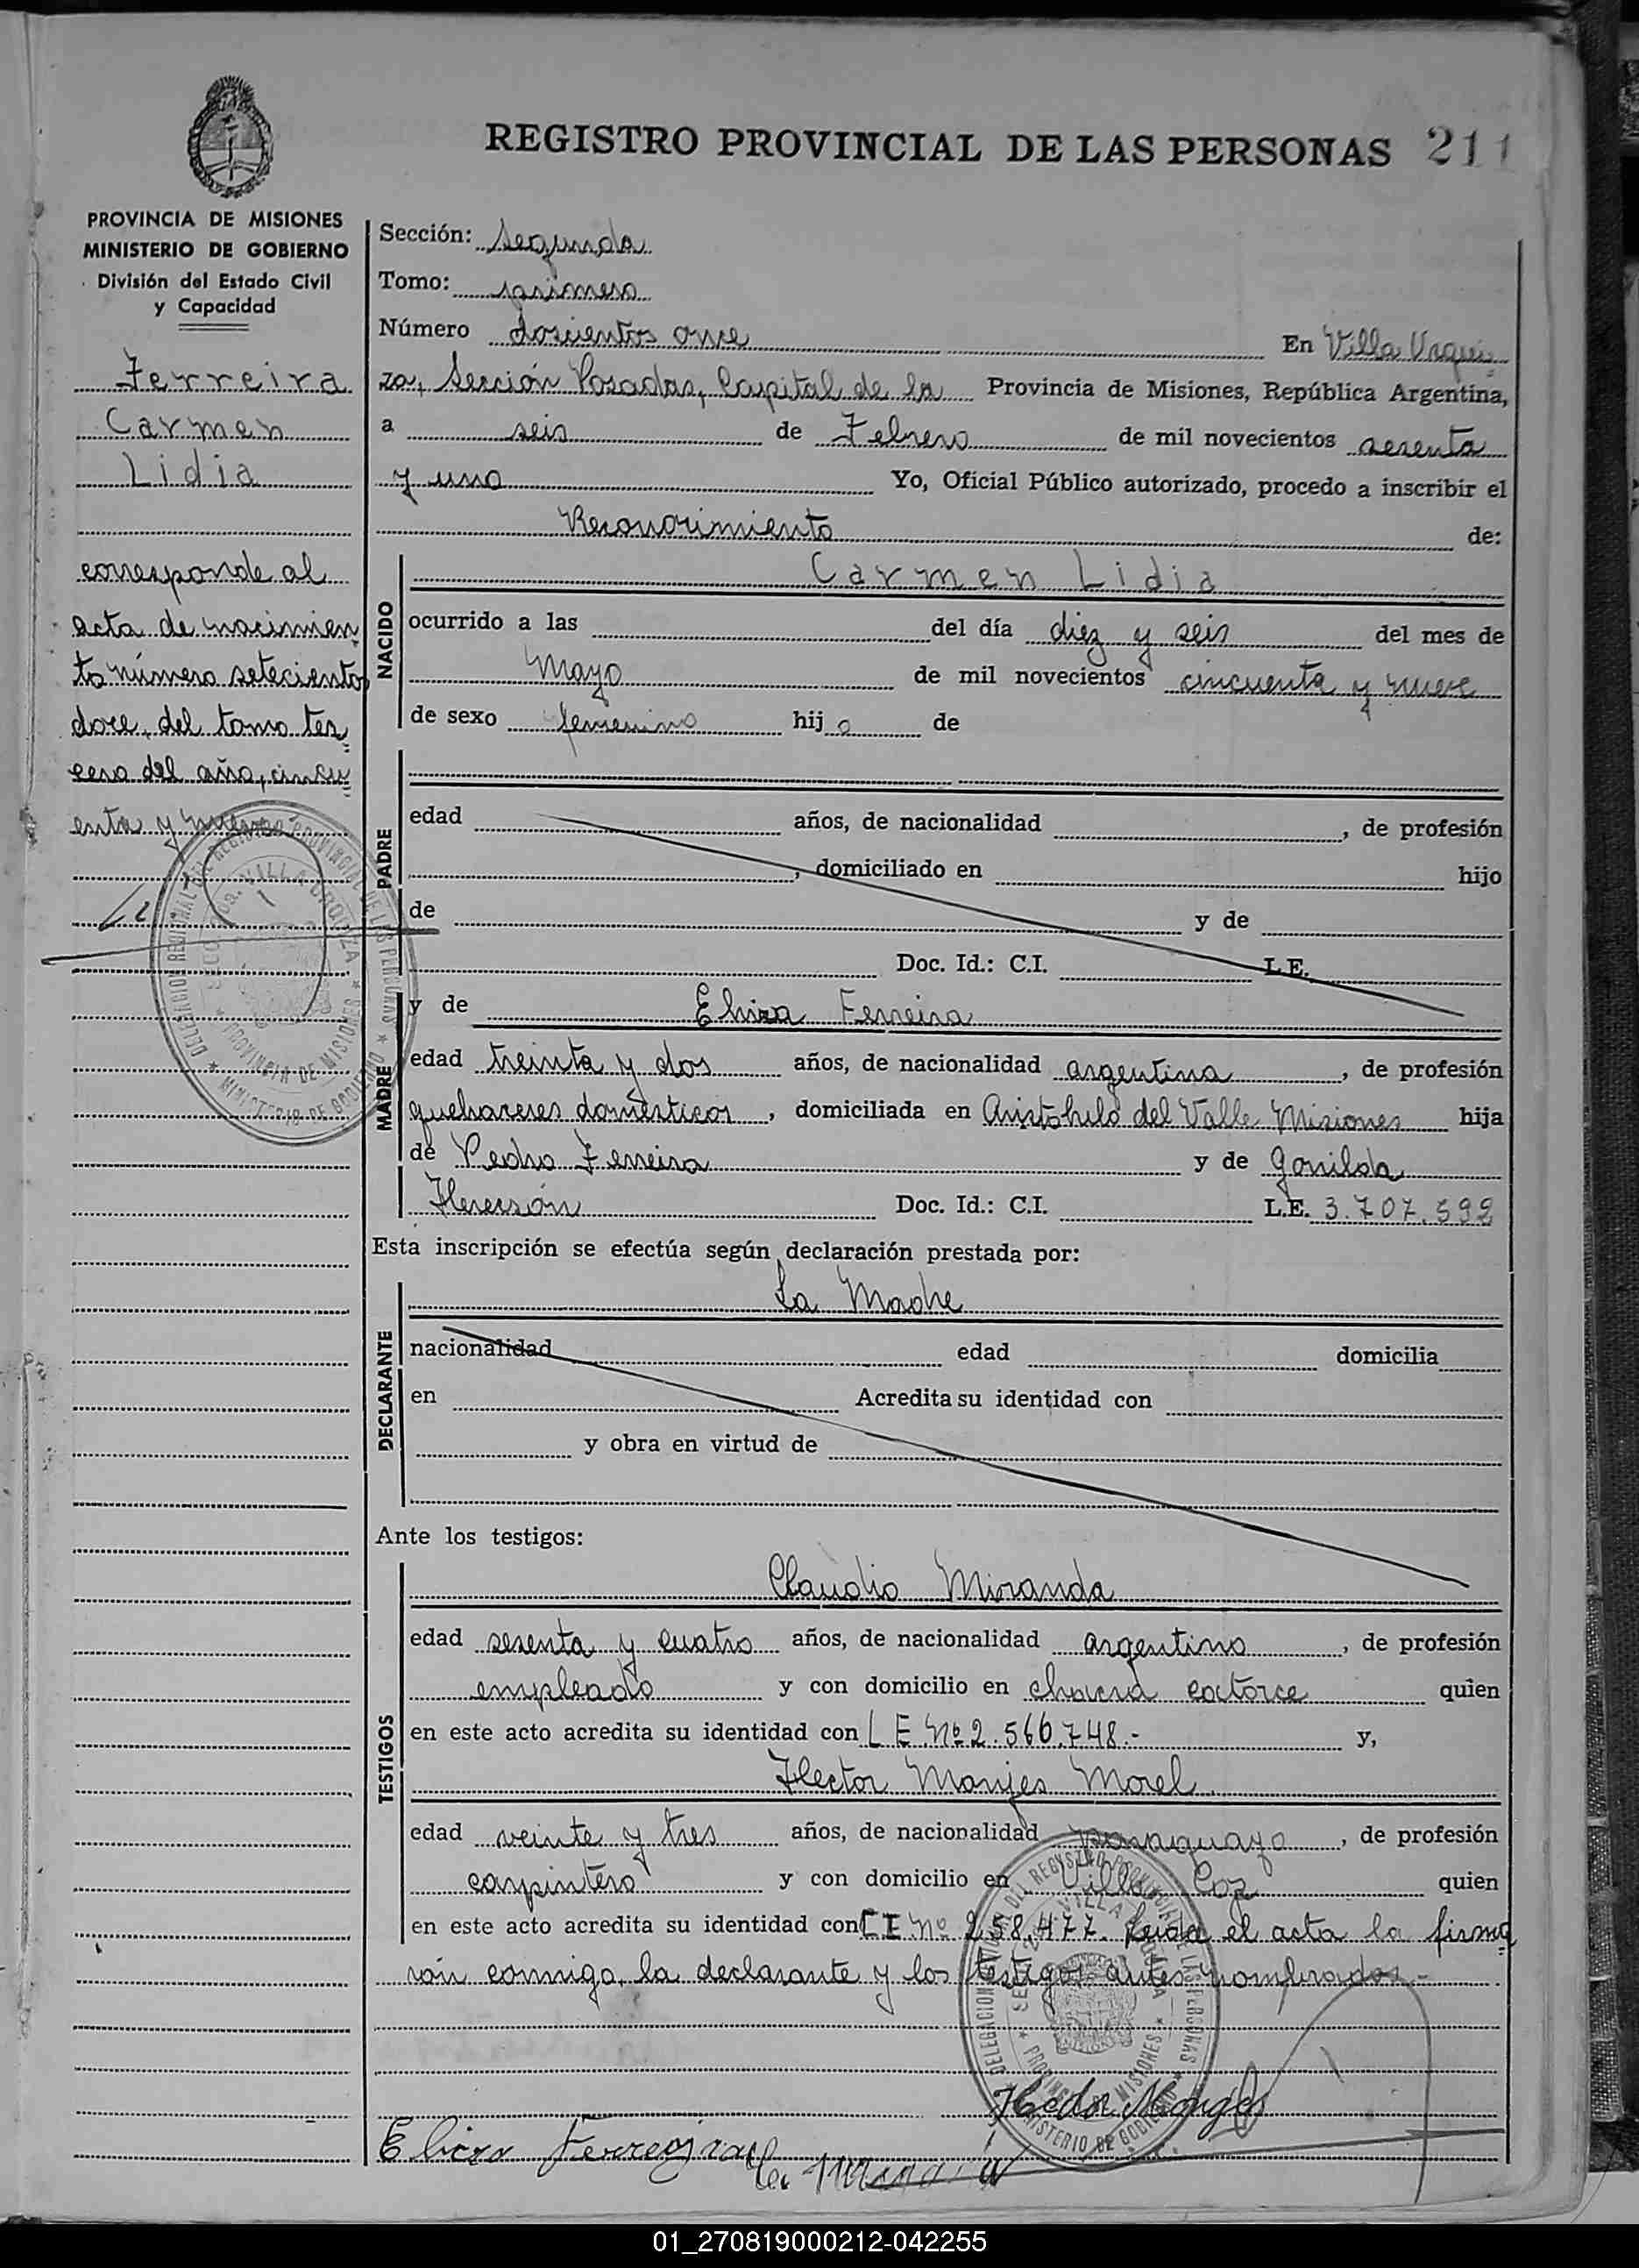 REGISTRO PROVINCIAL DE LAS PERSONAS 211
PROVINCIA DE MISIONES
MINISTERIO DE GOBIERNO
División del Estado Civil
y Capacidad
Ferreira
Carmen
Lidia
corresponde al
acta de nacimien
to número setecientos
doce, del tomo ter
cero del año, cincu
enta y nueve
Sección: Segunda
Tomo: primero
Número doscientos once En Villa Urqui
za, Sección Posadas, Capital de la Provincia de Misiones, República Argentina,
a seis de Febrero de mil novecientos sesenta
y uno Yo, Oficial Público autorizado, procedo a inscribir el
Reconocimiento de:
NACIDO
Carmen Lidia
ocurrido a las del día diez y seis del mes de
Mayo de mil novecientos cincuenta y nueve
de sexo femenino hij a de
PADRE
edad años, de nacionalidad , de profesión
, domiciliado en hijo
de y de
Doc. Id.: C.I. L.E.
MADRE
y de Elvira Ferreira
edad treinta y dos años, de nacionalidad argentina , de profesión
quehaceres domésticos , domiciliada en Aristóbulo del Valle Misiones hija
de Pedro Ferreira y de
Doc. Id.: C.I. L.E. 3.707.592
Esta inscripción se efectúa según declaración prestada por:
DECLARANTE
La Madre
nacionalidad edad domicilia
en Acredita su identidad con
y obra en virtud de
Ante los testigos:
TESTIGOS
Claudio Miranda
edad sesenta y cuatro años, de nacionalidad argentino , de profesión
empleado y con domicilio en chacra catorce quien
en este acto acredita su identidad con L E Nº 2.560.748.- y,
Hector Monjes Morel
edad veinte y tres años, de nacionalidad paraguayo , de profesión
carpintero y con domicilio en Villa quien
en este acto acredita su identidad con C I Nº 258.477. Leída el acta la firma
rón conmigo, la declarante y los testigos antes nombrados.-
DELEGACION REGIONAL DEL REGISTRO PROVINCIAL DE LAS PERSONAS
VILLA URQUIZA
PROVINCIA DE MISIONES
MINISTERIO DE GOBIERNO
Hector Monges
01_270819000212-042255